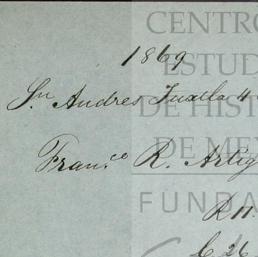 CENTRO
1869
ESTUD
Sn Andres Tuxtla 4
DE HIST
Franco R. Artig
DE ME
FUNDA
R 11.
C 26